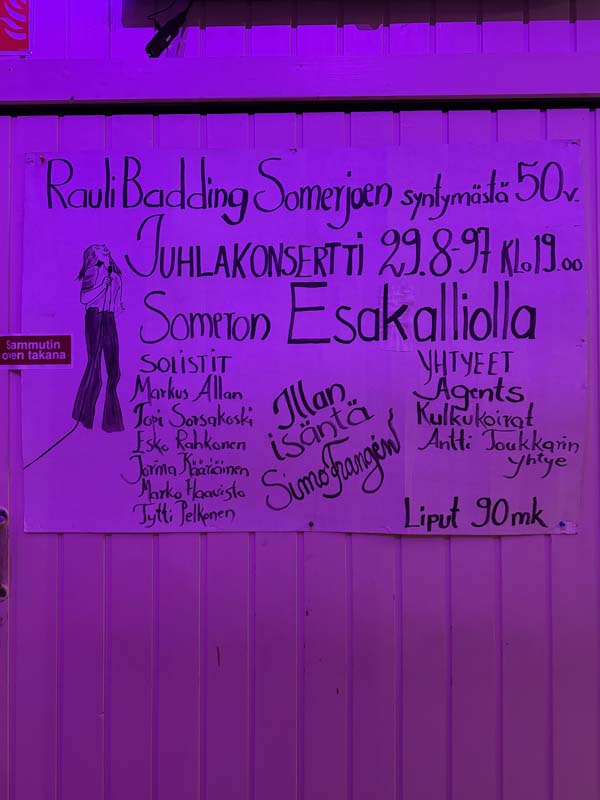 Rauli Badding Somerjoen syntymästä 50v.
JUHLAKONSERTTI 29.8-97 KLo 19.00
Someron Esakalliolla
SOLISTIT
Markus Allan
Topi Sorsakoski
Esko Rahkonen
Jorma Kääriäinen
Marko Haavisto
Tytti Pelkonen
Illan
isäntä
Simo Frangén
YHTYEET
Agents
Kulkukoirat
Antti Joukkarin
yhtye
Liput 90mk
Sammutin
oven takana